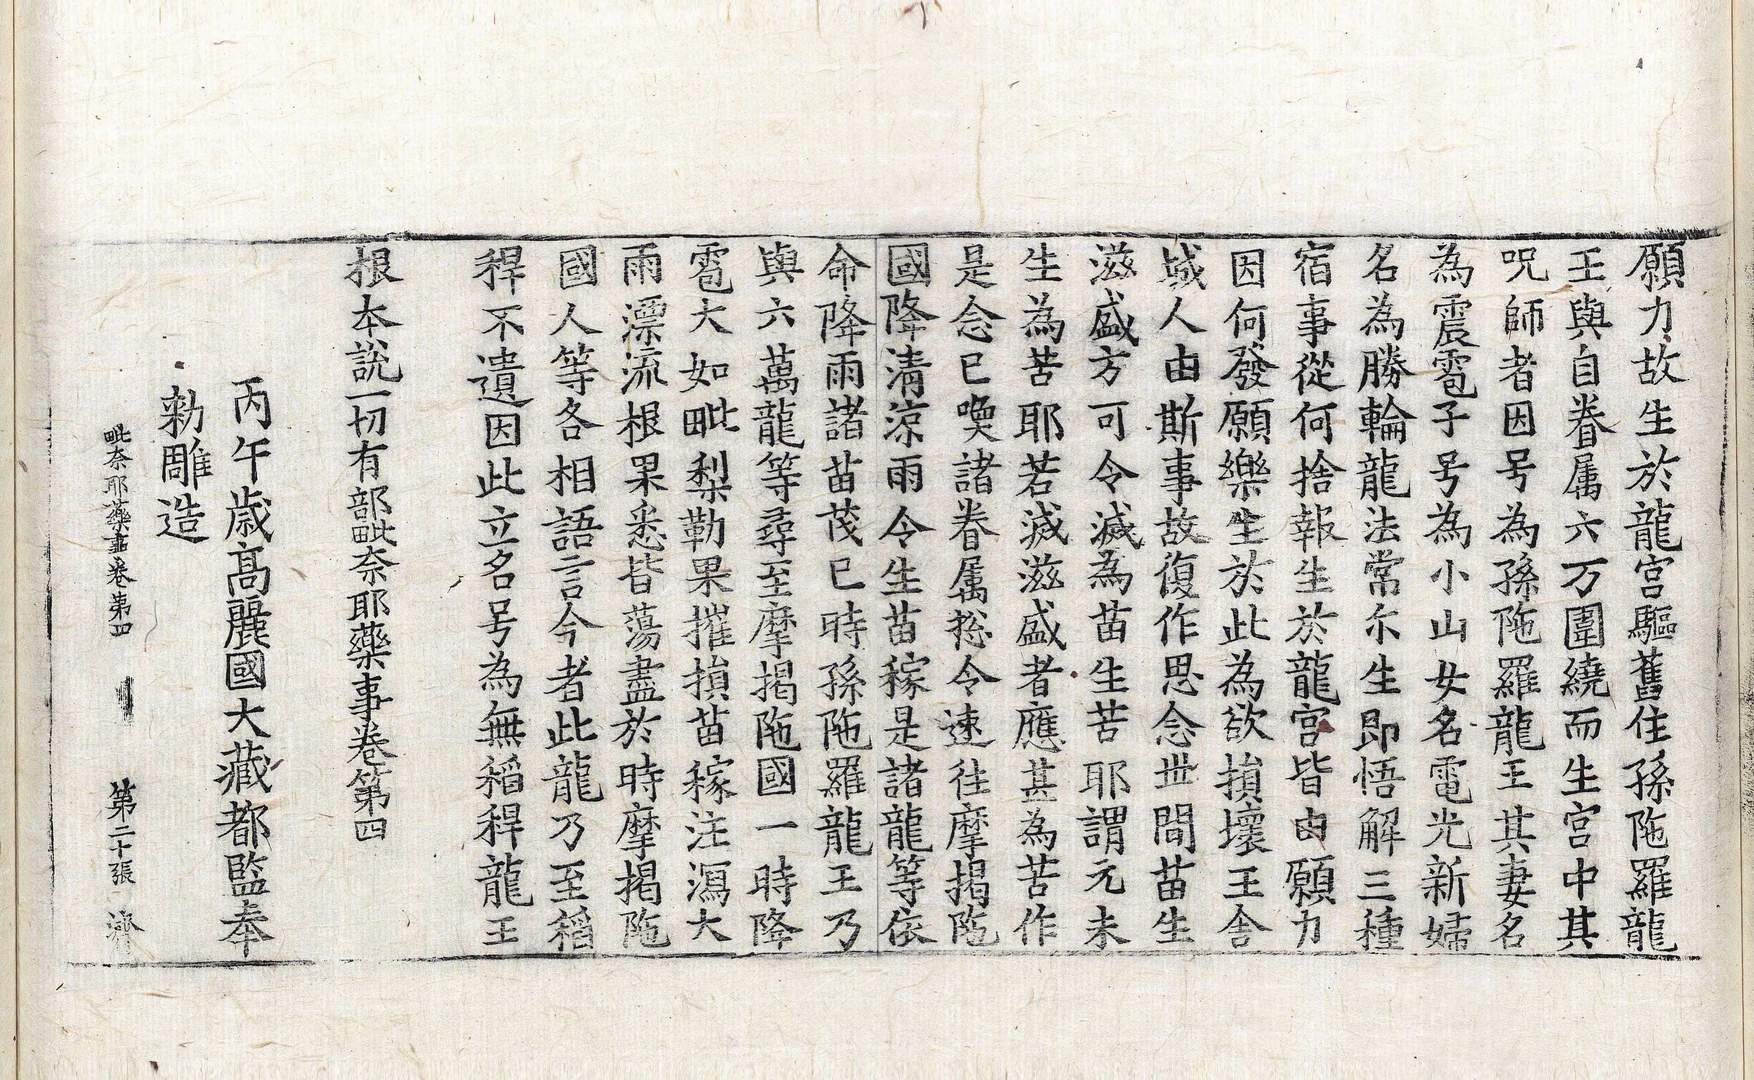 願力故生於龍宮驅舊住孫陁羅龍
王與自眷属六万圍繞而生宮中其
呪師者因号為孫陁羅龍王其妻名
為震雹子号為小山女名電光新婦
名為勝輪龍法常尓生即悟解三種
宿事從何捨報生於龍宮皆由願力
因何發願樂生於此為欲損壞王舍
城人由斯事故復作思念世間苗生
滋盛方可令滅為苗生苦耶謂元未
生為苦耶若滅滋盛者應甚為苦作
是念已喚諸眷属惣令速往摩揭陁
國降清涼雨令生苗稼是諸龍等依
命降雨諸苗茂已時孫陁羅龍王乃
與六萬龍等尋至摩揭陁國一時降
雹大如毗梨勒果摧損苗稼注瀉大
雨漂流根果悉皆蕩盡於時摩揭陁
國人等各相語言今者此龍乃至稻
稈不遺因此立名号為無稻稈龍王
根本說一切有部毗奈耶藥事卷第四
丙午歳髙麗國大藏都監奉
勑雕造
毗奈耶藥事卷第四 第二十張 濟